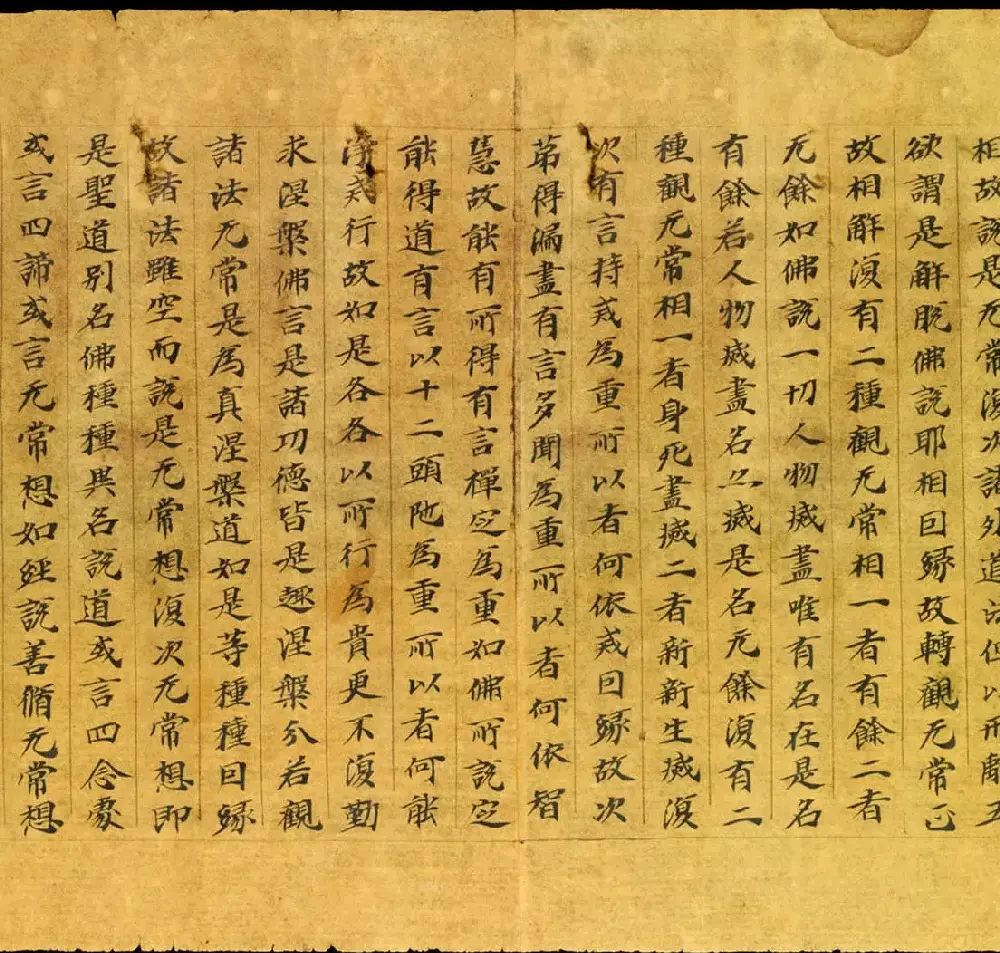 相故說是无常復次諸外道法但以形離五
欲謂是解脫佛說耶相因縁故轉觀无常正
故相解復有二種觀无常相一者有餘二者
无餘如佛說一切人物滅盡唯有名在是名
有餘若人物滅盡名亦滅是名无餘復有二
種觀无常相一者身死盡滅二者新新生滅復
次有言持戒為重所以者何依戒因縁故次
苐得漏盡有言多聞為重所以者何依智
慧故能有所得有言禪定為重如佛所說定
能得道有言以十二頭陁為重所以者何能
淨戒行故如是各各以所行為貴更不復勤
求涅槃佛言是諸功德皆是趣涅槃分若觀
諸法无常是為真涅槃道如是等種種因縁
故諸法雖空而說是无常想復次无常想即
是聖道別名佛種種異名說道或言四念處
或言四諦或言无常想如經說善脩无常想